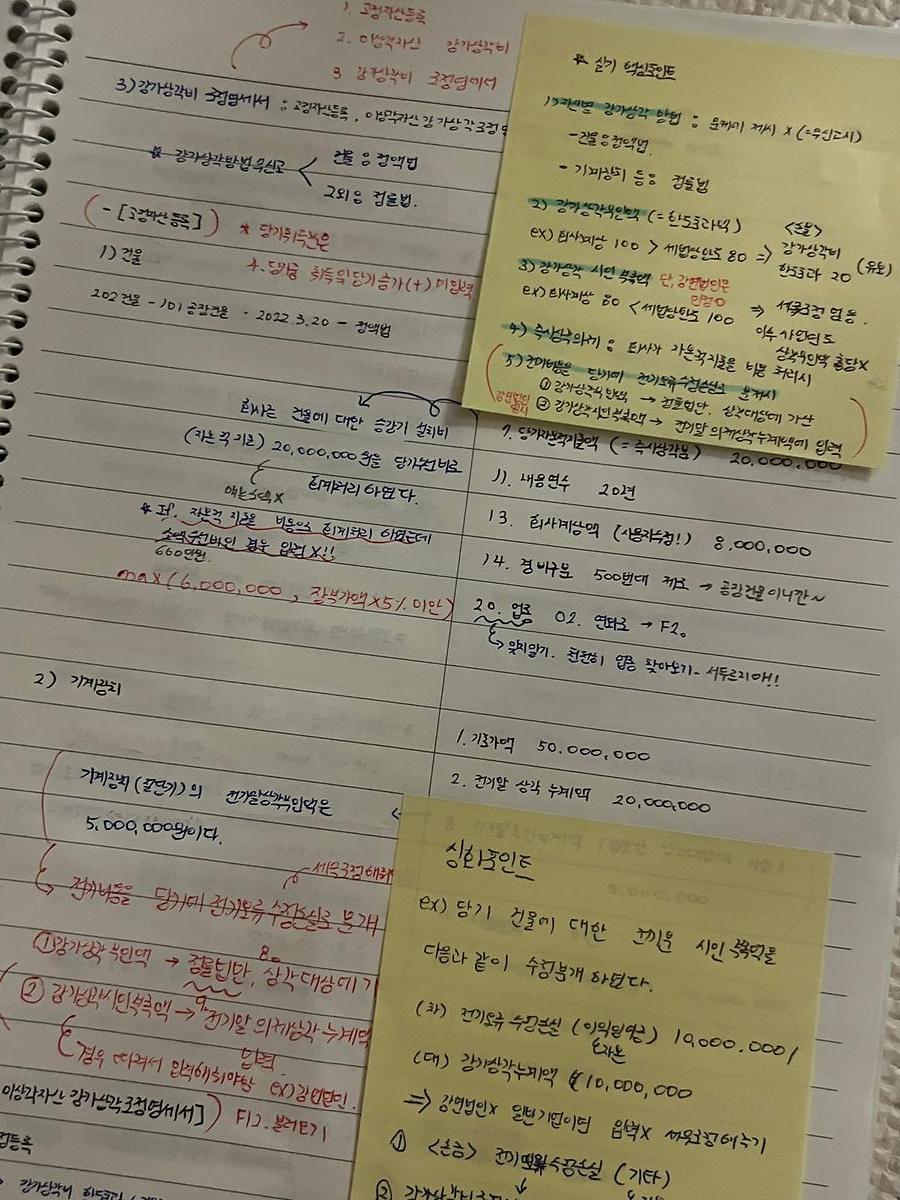 1. 고정자산등록
2. 미상각자산 감가상각비
3. 감가상각비 조정명세서
3) 감가상각비 조정명세서 : 고정자산등록, 미상각자산감가상각조정명
* 감가상각방법 무신고 < 건물 등 정액법
그외 등 정률법.
- [고정자산등록]
* 당기취득분은
4. 당기중 취득및당기증가(+) 미입력
1) 건물
202 건물 - 101 공장건물 - 2022.3.20 - 정액법
회사는 건물에 대한 승강기 설치비
(자본적지출) 20,000,000원을 당기수선비로
회계처리 하였다.
* if. 자본적 지출을 비용으로 회계처리 하였는데
소액수선비인 경우 입력 X!!
660만원.
max(6,000,000, 장부가액×5% 미만)
7. 당기자본적지출액 (=즉시상각분) 20,000,000
11. 내용연수 20년
13. 회사계상액 (사용자수정!) 8,000,000
14. 경비구분 500번대 제조 → 공장건물이니깐~
20. 업종 02. 연와조 → F2。
잊지말기. 천천히 업종 찾아보기- 서두르지마!!
2) 기계장치
기계장치(절단기)의 전기말상각부인액은
5,000,000원이다.
1. 기초가액 50,000,000
2. 전기말 상각 누계액 20,000,000
세무조정해줘
→ 전기비용을 당기에 전기오류수정손실로 분개
① 감가상각부인액 → 정률법만, 상각대상에 가
② 감가상각시인부족액 → 전기말 의제상각 누계액
입력.
경우 따져서 입력해줘야함 ex) 감면법인.
미상각자산 감가상각조정명세서] F12. 불러오기
* 실기 핵심포인트
1) 자산별 감가상각 방법 : 문제에 제시 X (=무신고시)
- 건물등정액법.
- 기계장치 등은 정률법
2) 감가상각부인액 (=한도초과액)
ex) 회사계상 100 > 세법상한도 80 ⇒ <손불> 감가상각비 한도초과 20 (유보)
3) 감가상각 시인 부족액 단, 감면법인은 인정O
ex) 회사계상 80 < 세법상한도 100 ⇒ 세무조정 없음.
이후 시인되도
상각부인액 충당X
4) 즉시상각의제 : 회사가 자본적지출을 비용 처리시
5) 전기비용을 당기에 전기오류수정손실로 분개시
① 감가상각부인액 → 정률법만. 상각대상에 가산
감면법인 일시 ② 감가상각시인부족액 → 전기말 의제상각누계액에 입력
심화포인트
ex) 당기 건물에 대한 전기분 시인 부족액을
다음과 같이 수정분개 하였다.
(차) 전기오류 수정손실 (이익잉여금) 10,000,000/
자본
(대) 감가상각누계액 10,000,000
⇒ 감면법인X 일반기업이면 입력X 세무조정해주기
① <손금> 전기오류수정손실 (기타)